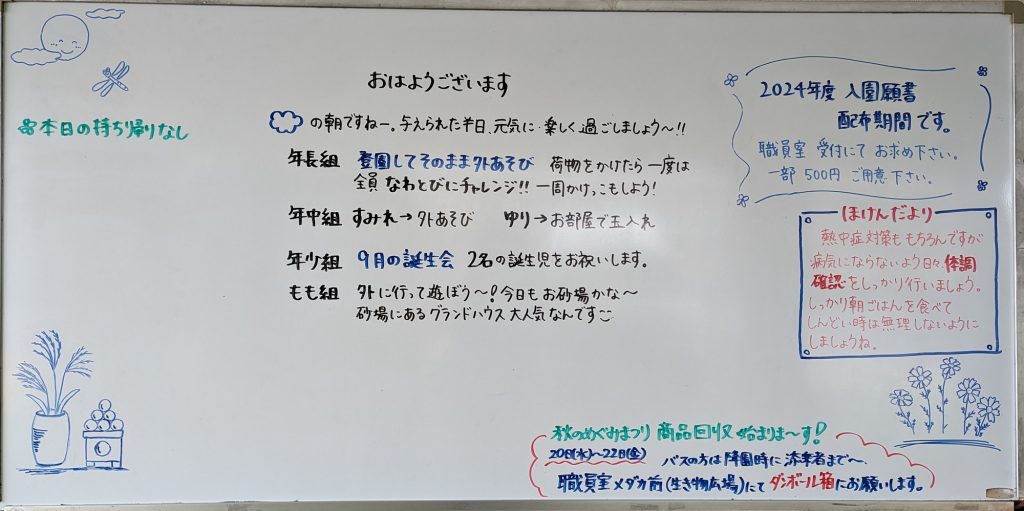 おはようございます
本日の持ち帰りなし
の朝ですねー。与えられた半日、元気に楽しく過ごしましょう〜!!
年長組 登園してそのまま外あそび 荷物をかけたら一度は
全員なわとびにチャレンジ!! 一周かけっこもしよう!
年中組 すみれ→外あそび ゆり→お部屋で玉入れ
年少組 9月の誕生会 2名の誕生児をお祝いします。
もも組 外に行って遊ぼう〜!今日もお砂場かな〜
砂場にあるグランドハウス大人気なんです
2024年度 入園願書
配布期間です。
職員室 受付にて お求め下さい。
一部 500円 ご用意下さい。
ほけんだより
熱中症対策ももちろんですが
病気にならないよう日々、体調
確認をしっかり行いましょう。
しっかり朝ごはんを食べて
しんどい時は無理しないように
しましょうね。
秋のめぐみまつり 商品回収 始まりま〜す!
20日(水)〜22日(金) バスの方は降園時に添乗者まで〜
職員室メダカ前(生き物広場)にて ダンボール箱にお願いします。